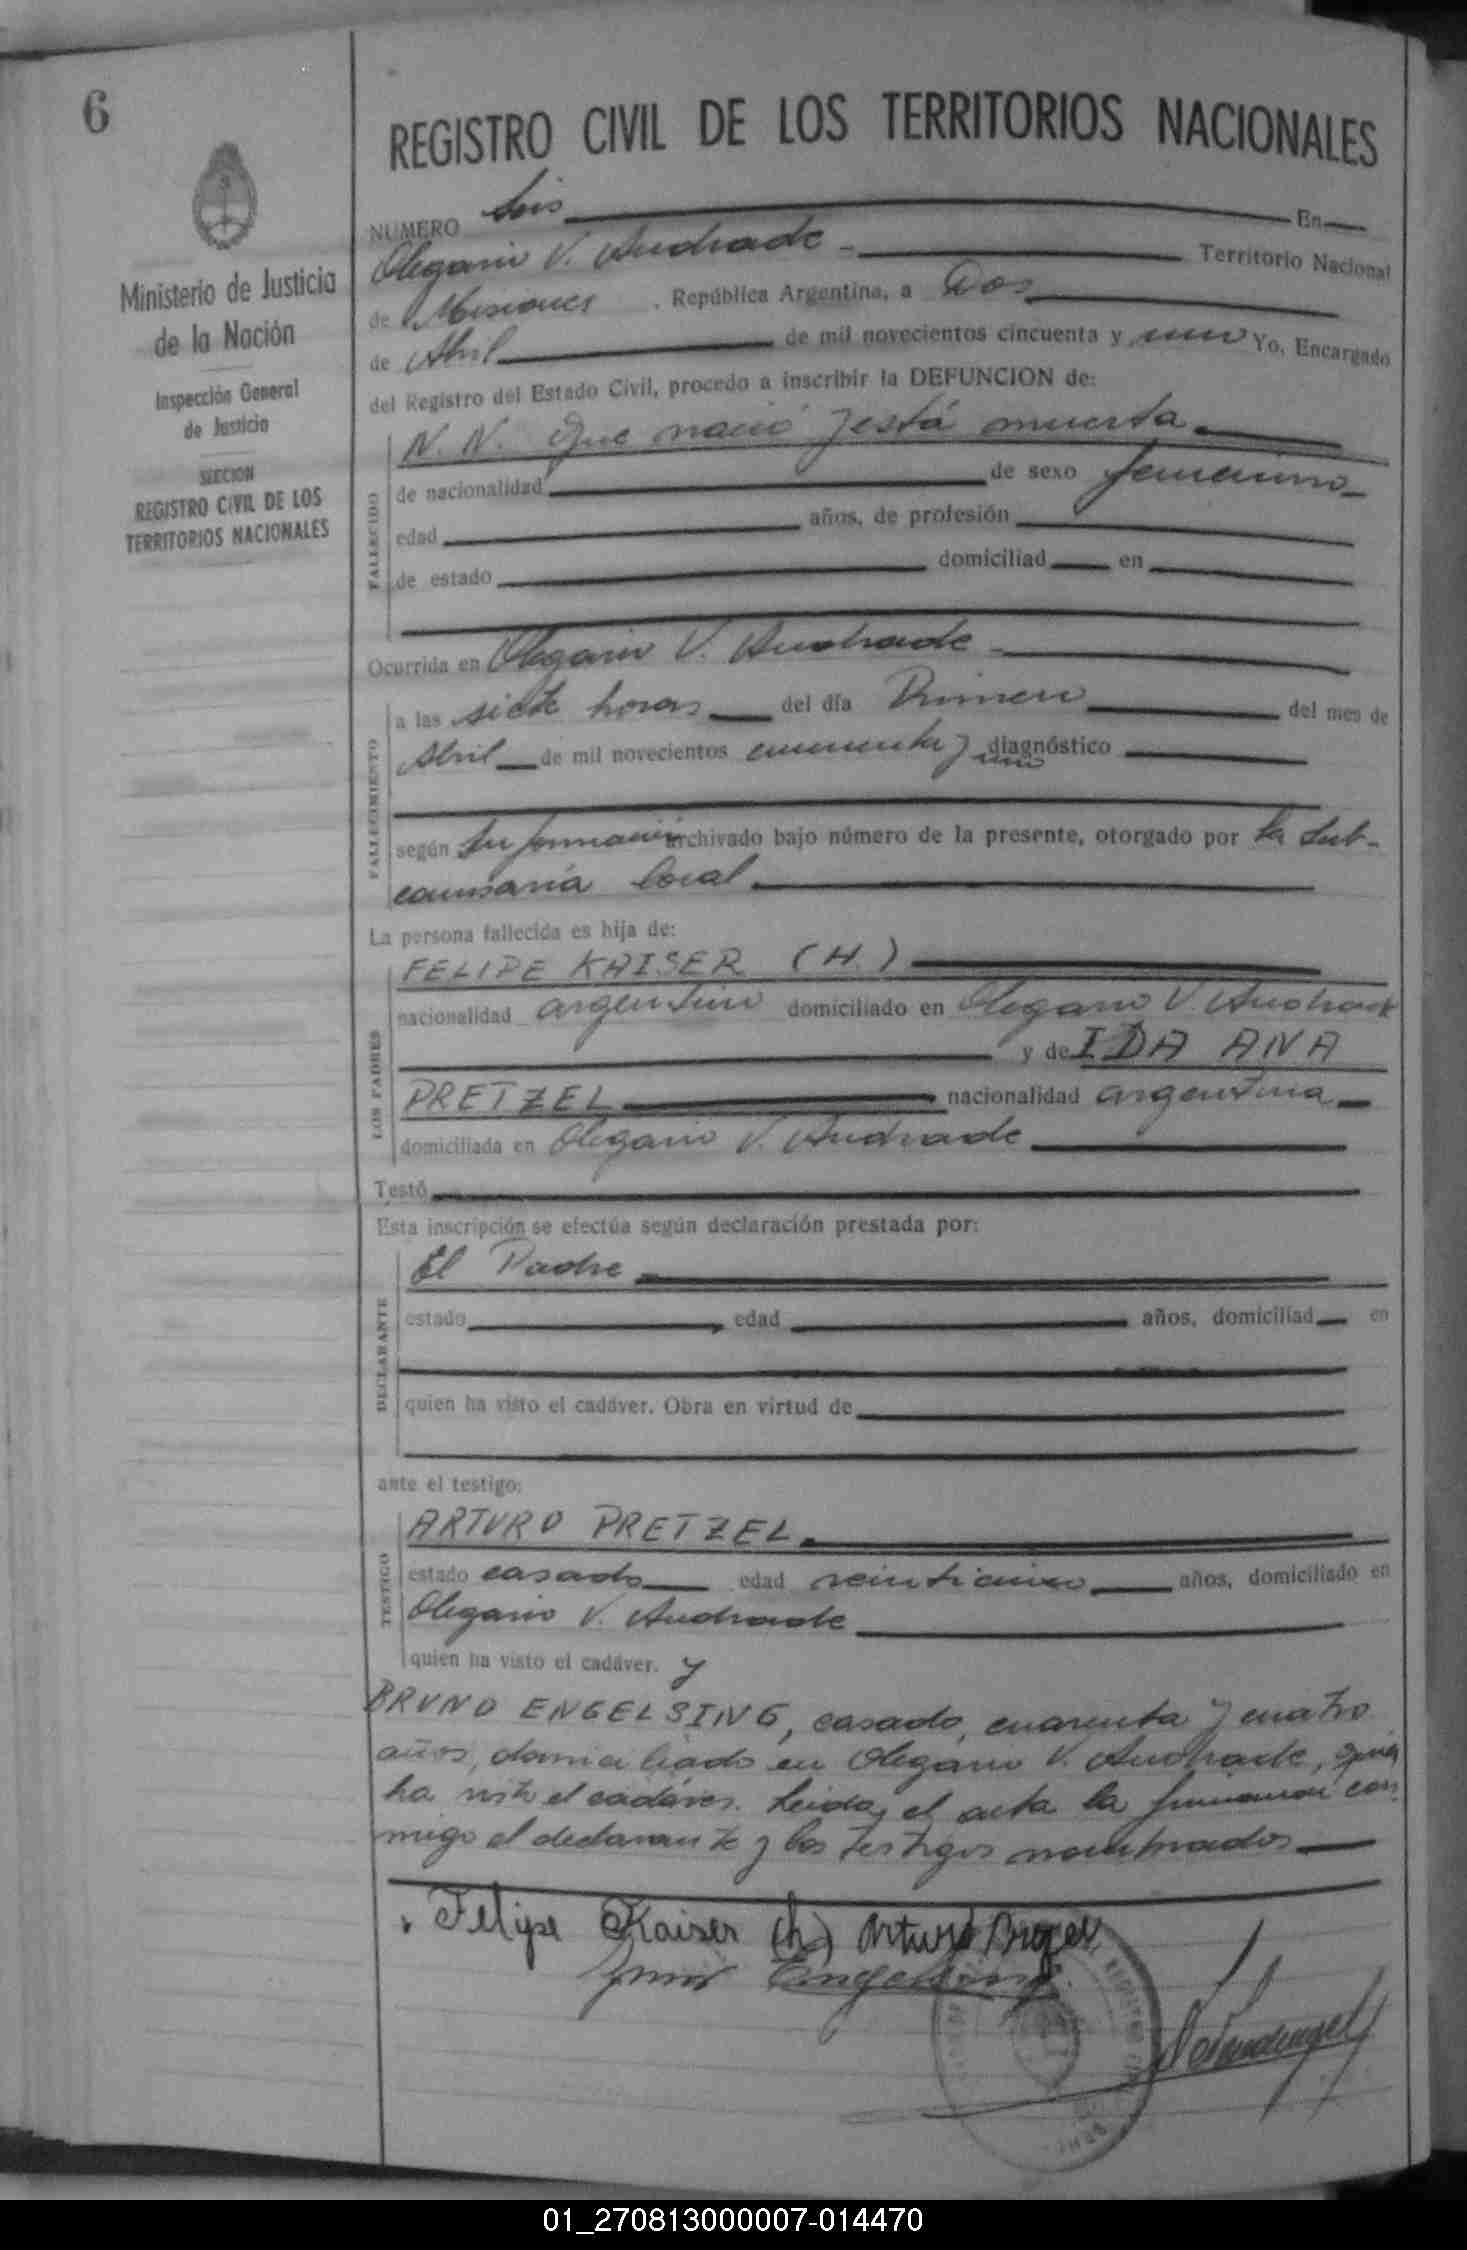 6
REGISTRO CIVIL DE LOS TERRITORIOS NACIONALES
Ministerio de Justicia
de la Nación
Inspección General
de Justicia
SECCION
REGISTRO CIVIL DE LOS
TERRITORIOS NACIONALES
NUMERO Seis En
Olegario V. Andrade Territorio Nacional
de Misiones . República Argentina, a Dos
de Abril de mil novecientos cincuenta y uno Yo, Encargado
del Registro del Estado Civil, procedo a inscribir la DEFUNCION de:
N. N. Que nació y está muerta
FALLECIDO
de nacionalidad de sexo femenino
edad años, de profesión
de estado domiciliad en
Ocurrida en Olegario V. Andrade
FALLECIMIENTO
a las siete horas del día Primero del mes de
Abril de mil novecientos cincuenta y uno diagnóstico
según Información archivado bajo número de la presente, otorgado por la Sub-
comisaría local
La persona fallecida es hija de:
LOS PADRES
FELIPE KAISER (H.)
nacionalidad argentino domiciliado en Olegario V. Andrade
y de IDA ANA
PRETZEL nacionalidad argentina
domiciliada en Olegario V. Andrade
Testó
Esta inscripción se efectúa según declaración prestada por:
DECLARANTE
El Padre
estado edad años, domiciliad en
quien ha visto el cadáver. Obra en virtud de
ante el testigo:
TESTIGO
ARTURO PRETZEL
estado casado edad veinticinco años, domiciliado en
Olegario V. Andrade
quien ha visto el cadáver. y
BRUNO ENGELSING, casado, cuarenta y cuatro
años, domiciliado en Olegario V. Andrade, quien
ha visto el cadáver. Leida el acta la firmaron con-
migo el declarante y los testigos nombrados
Felipe Kaiser (h) Arturo
Engelsing
01_270813000007-014470